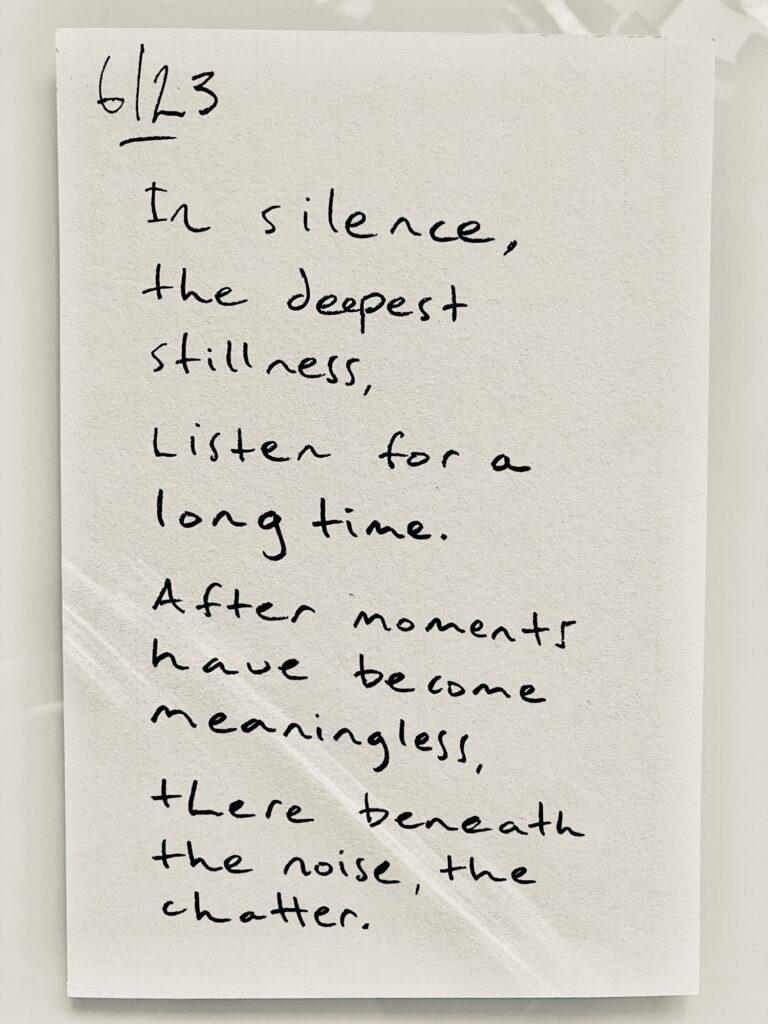 6/23
In silence,
the deepest
stillness,
Listen for a
long time.
After moments
have become
meaningless,
there beneath
the noise, the
chatter.